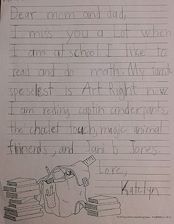 Dear mom and dad,
I miss you a lot when
I am at school I like to
read and do math. My family
speselest is Art Right now
I am reding captin underpants,
the choclet touch, magic animal
friends, and Juni b Jones.
Love,
Katelyn